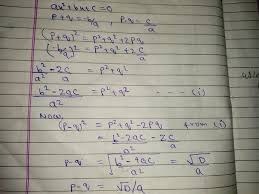 ax²+bx+c=0
p+q=-b/a , p.q=c/a
(p+q)²=p²+q²+2pq
(-b/a)²=p²+q²+2c/a
b²/a² - 2c/a = p²+q²
b²-2C/a² = p²+q² ---- (i)
Now,
(p-q)² = p²+q²-2pq from (i)
= b²-2c/a² - 2c/a
p-q = √b²-4ac/a² = √D/a
p-q = √D/a